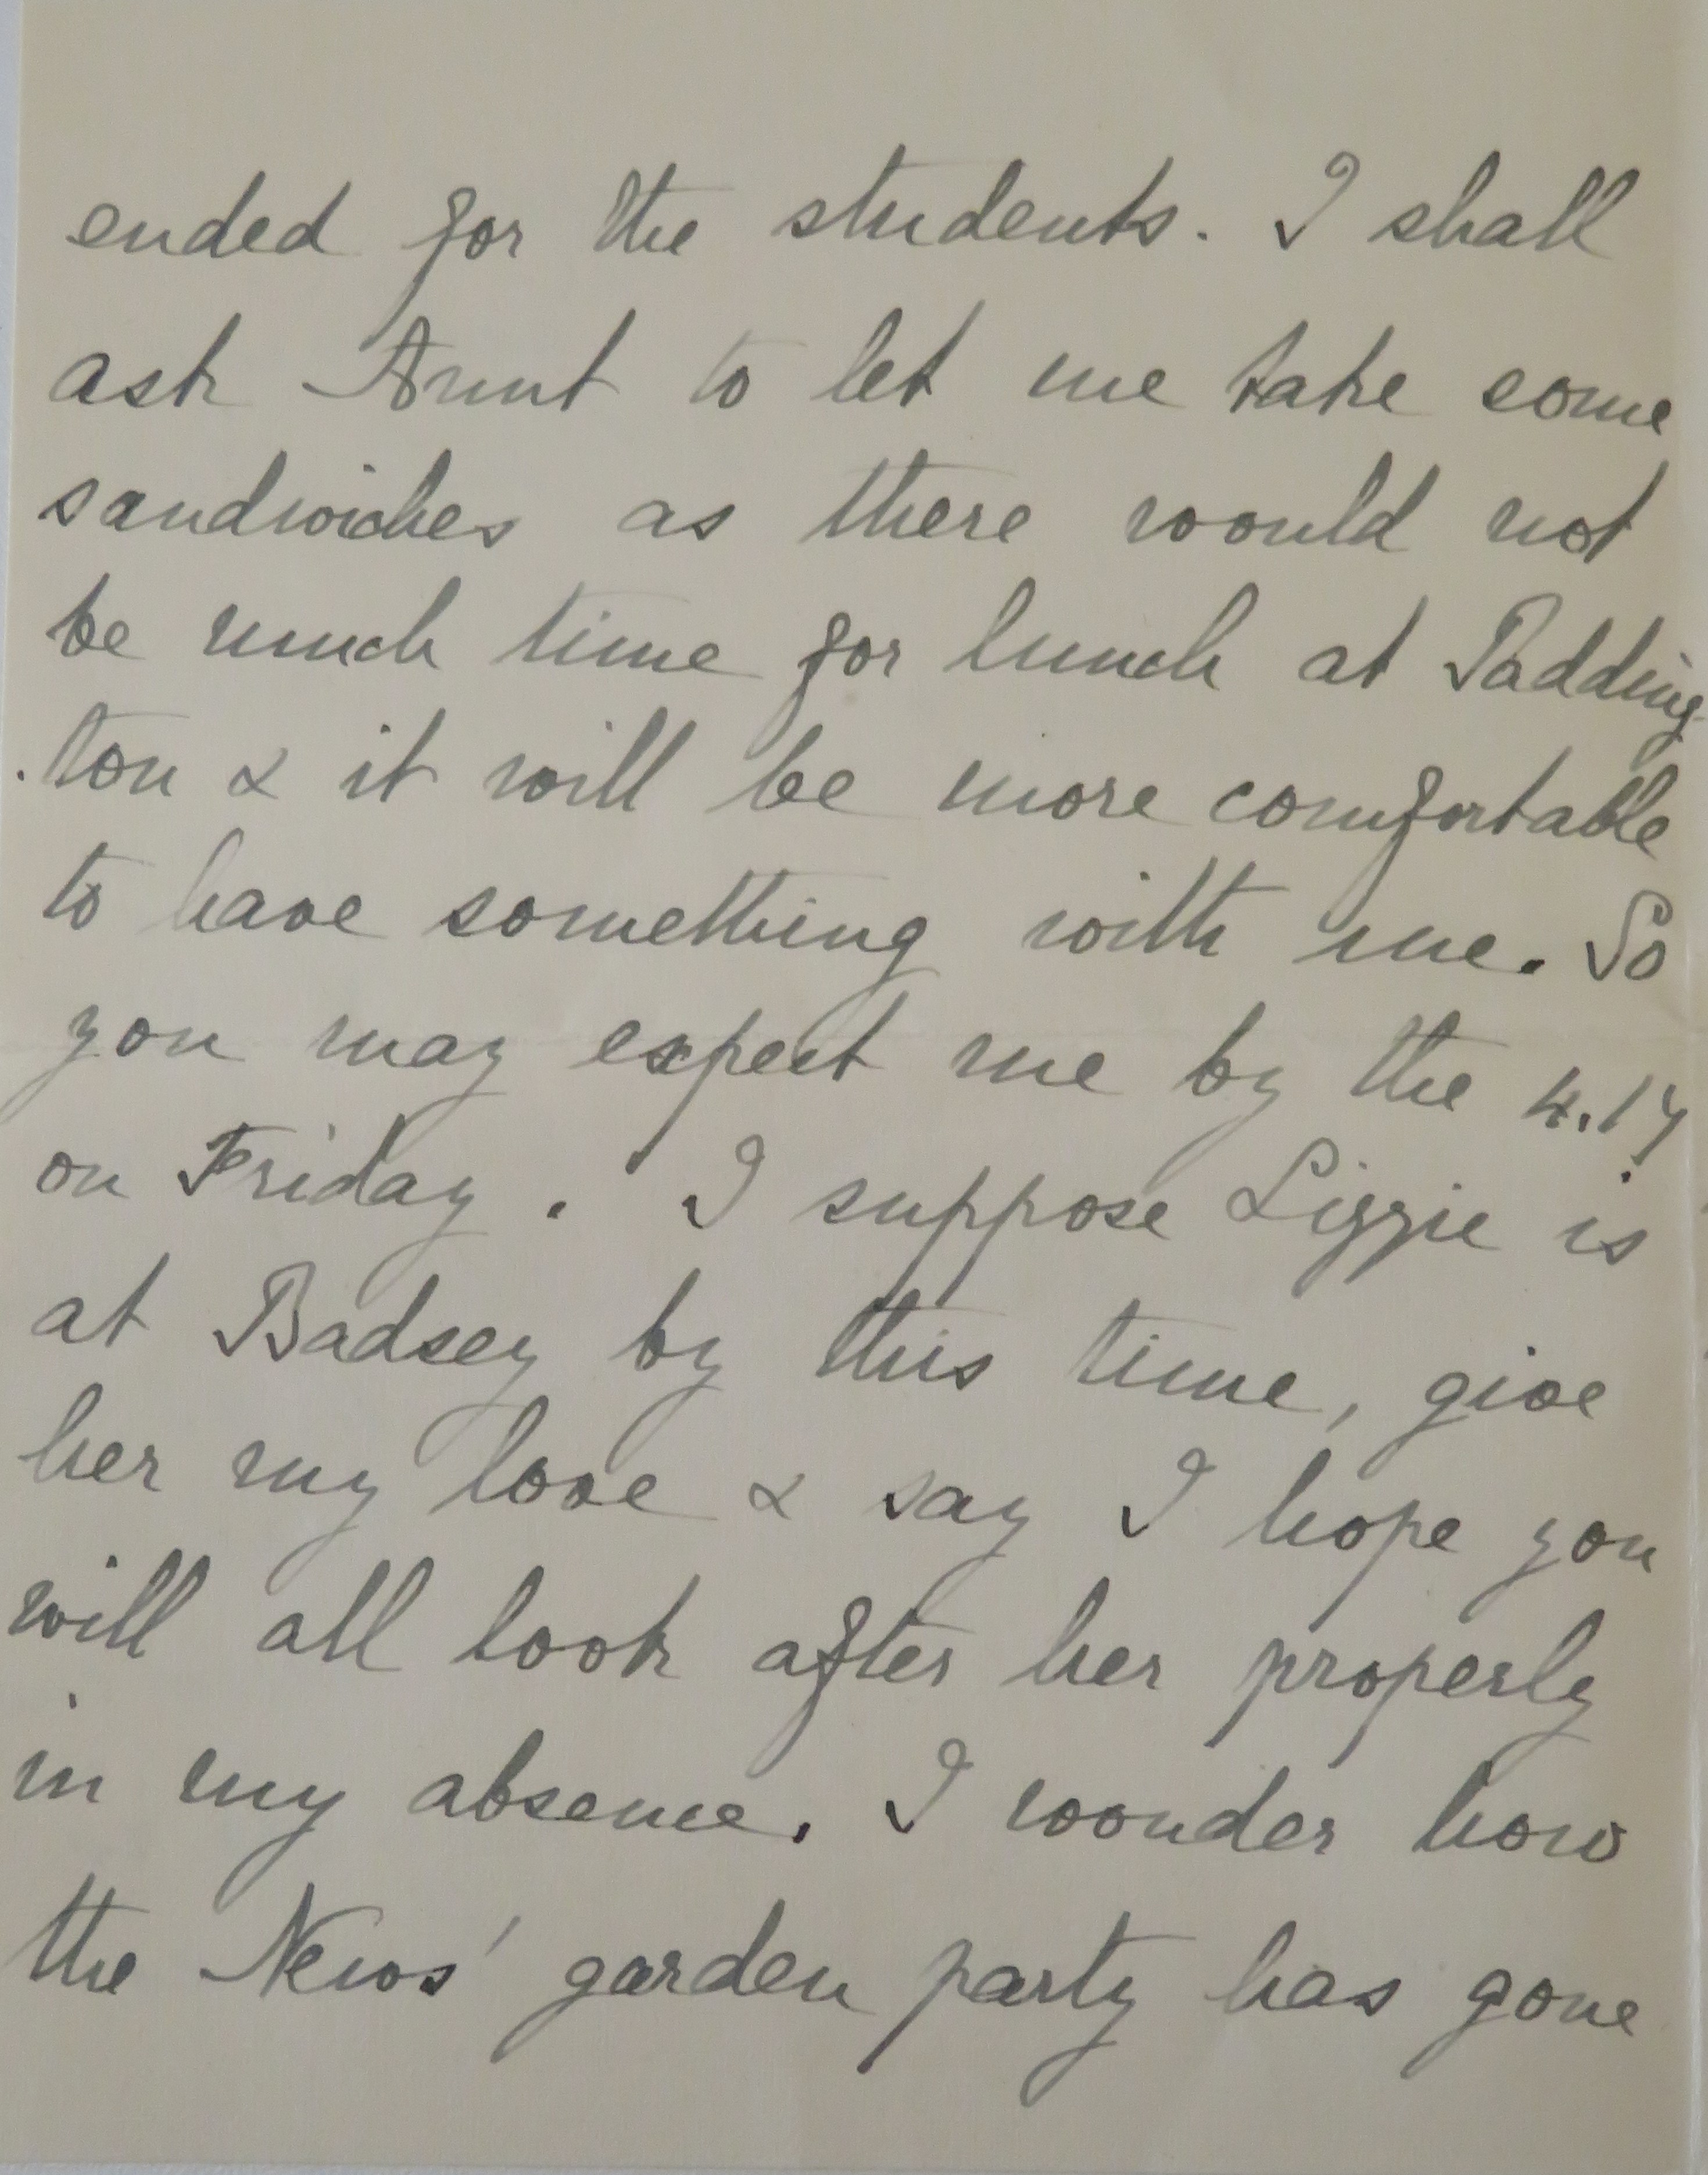 ended for the students. I shall
ask Aunt to let me take some
sandwiches as there would not
be much time for lunch at Padding-
-ton & it will be more comfortable
to have something with me. So
you may expect me by the 4.17
on Friday. I suppose Lizzie is
at Badsey by this time, give
her my love & say I hope you
will all look after her properly
in my absence. I wonder how
the News' garden party has gone